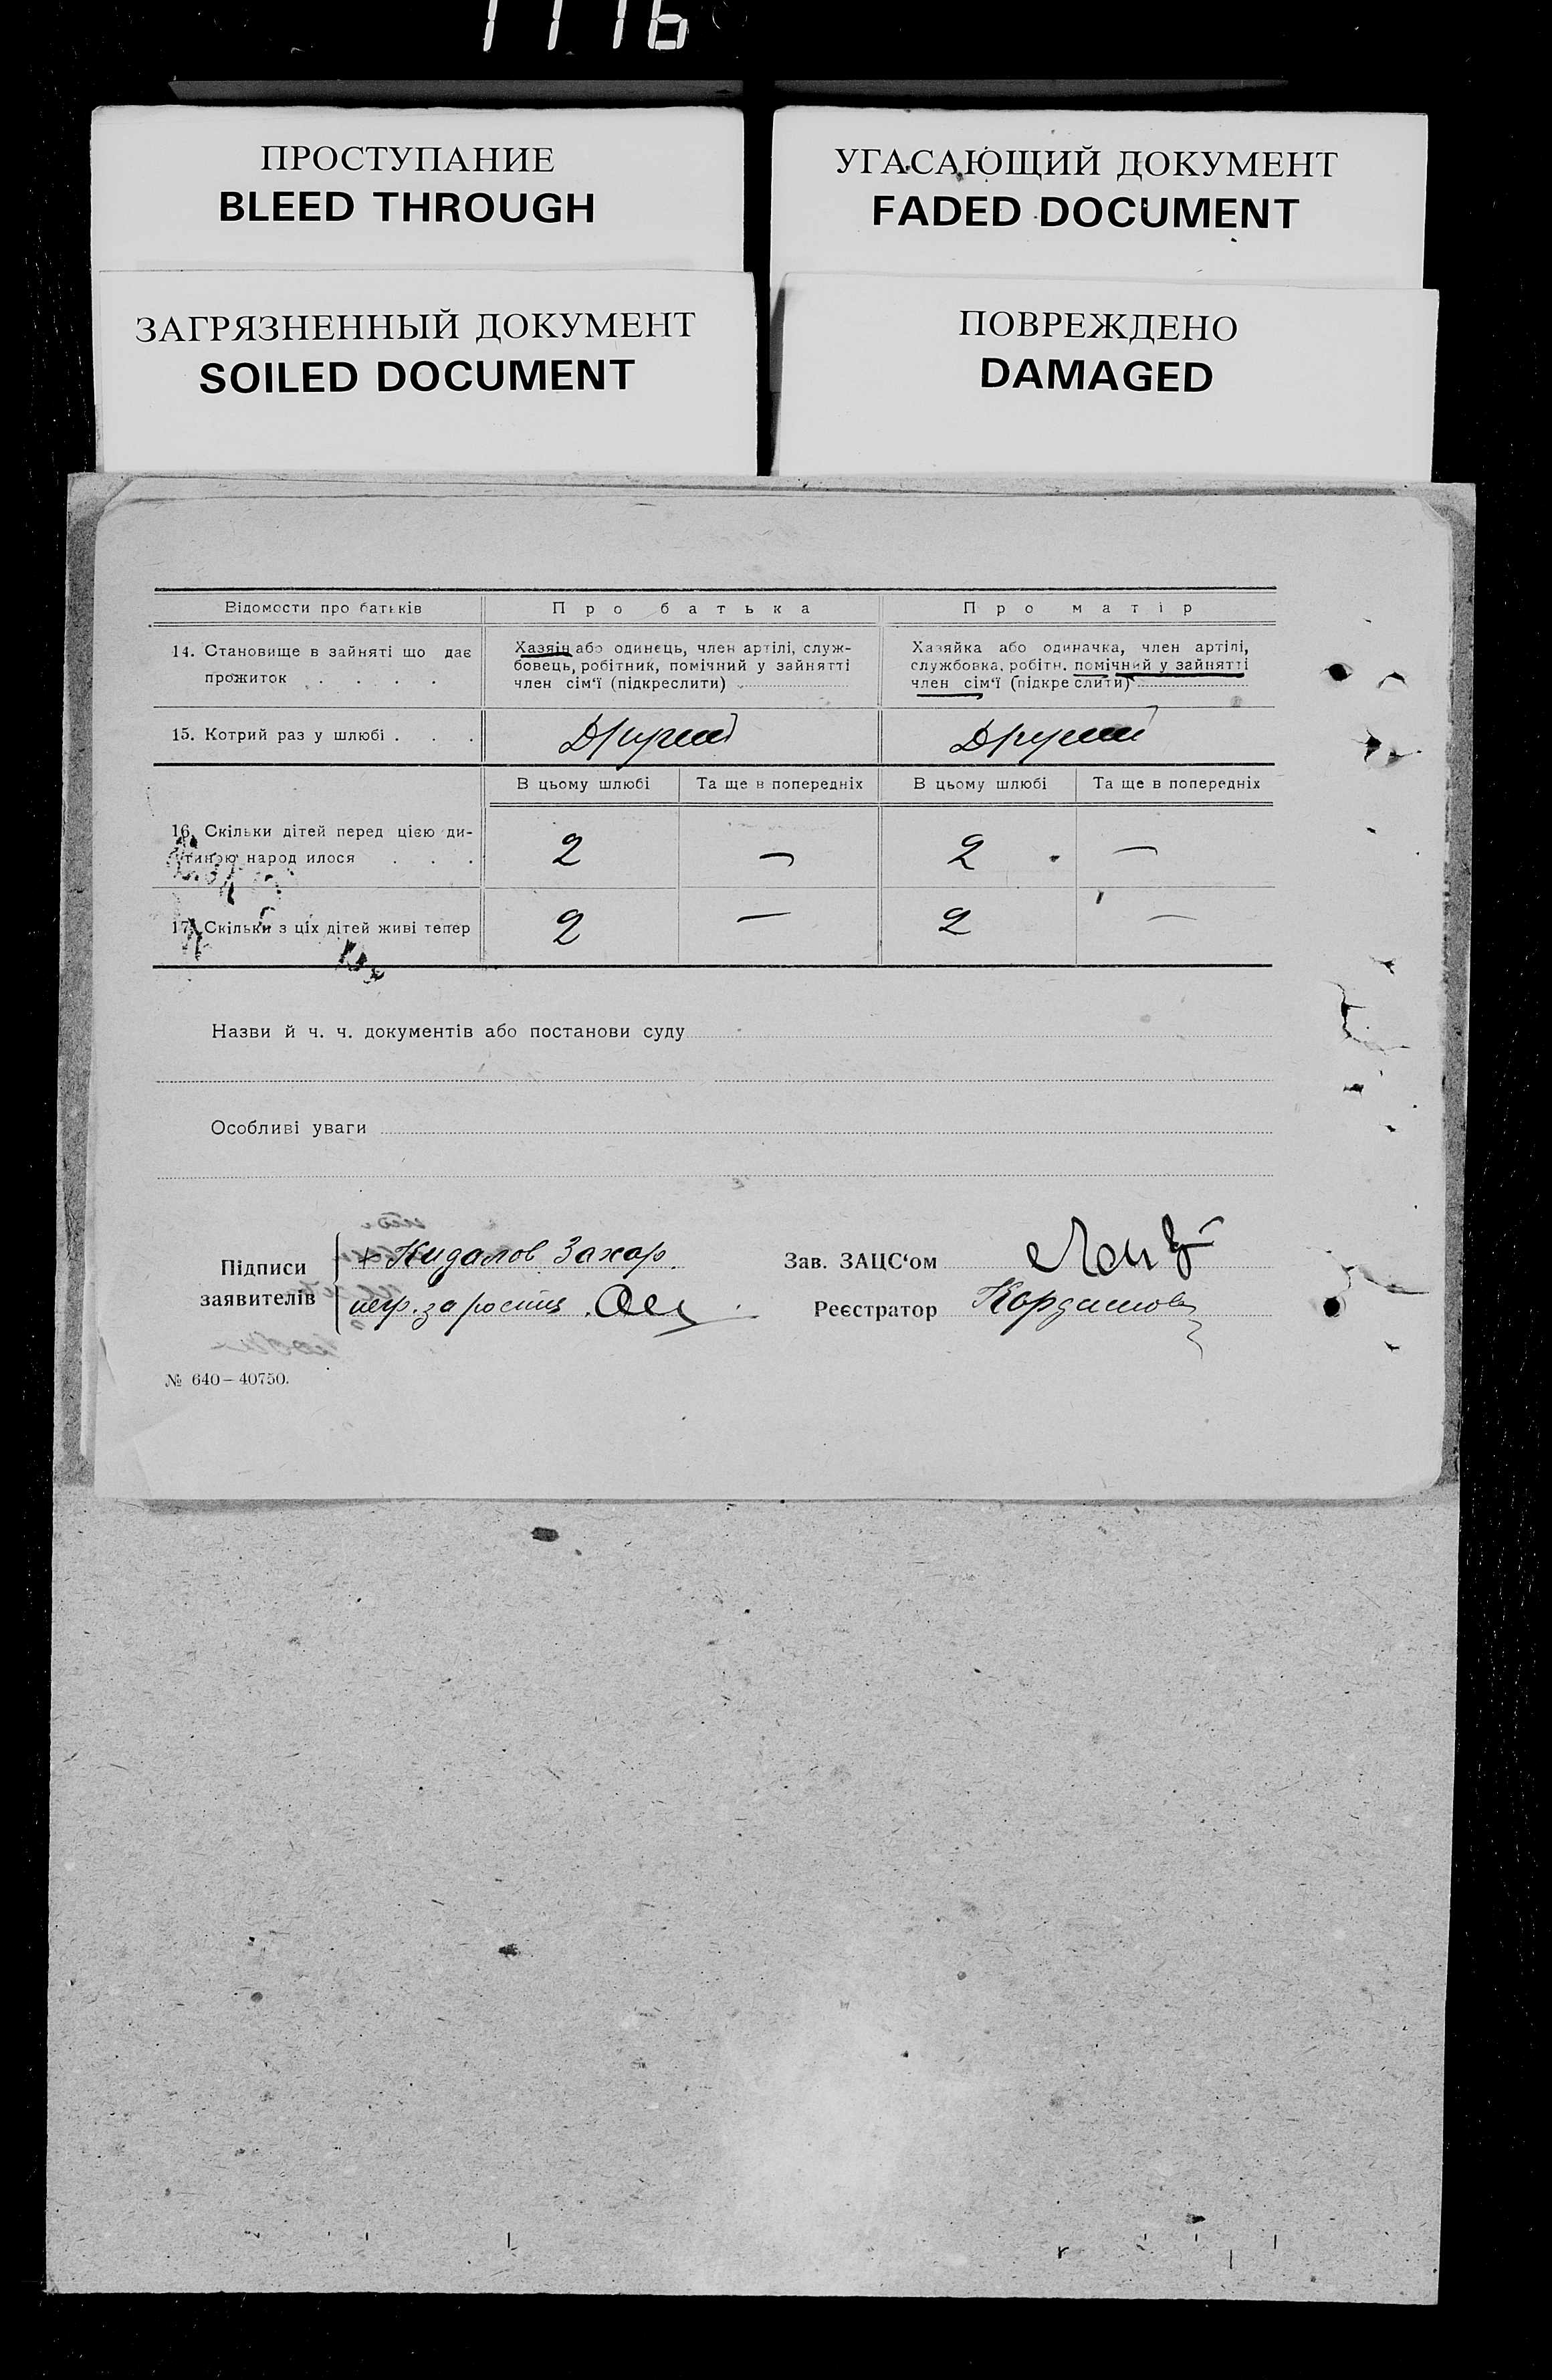 1116
ПРОСТУПАНИЕ
BLEED THROUGH
УГАСАЮЩИЙ ДОКУМЕНТ
FADED DOCUMENT
ЗАГРЯЗНЕННЫЙ ДОКУМЕНТ
SOILED DOCUMENT
ПОВРЕЖДЕНО
DAMAGED
Відомости про батьків Про батька Про матір
14. Становище в зайняті що дає прожиток . . . .
Хазяїн або одинець, член артілі, служ-
бовець, робітник, помічний у зайнятті
член сім'ї (підкреслити)
Хазяйка або одиначка, член артілі,
службовка, робітн. помічний у зайнятті
член сім'ї (підкреслити)
15. Котрий раз у шлюбі . . . Другий Другий
В цьому шлюбі Та ще в попередніх В цьому шлюбі Та ще в попередніх
16. Скільки дітей перед цією ди-
тиною народилося . . . 2 — 2 —
17. Скільки з ціх дітей живі тепер 2 — 2 —
Назви й ч. ч. документів або постанови суду
Особливі уваги
Підписи
заявителів
+ Кидалов Захар
негр. за
Зав. ЗАЦС'ом
Реєстратор
№ 640–40750.